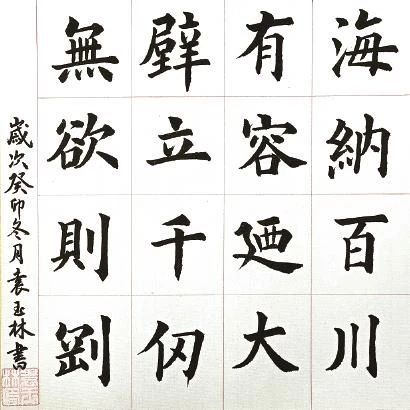 海納百川
有容廼大
壁立千仞
無欲則剛
歲次癸卯冬月袁玉林書